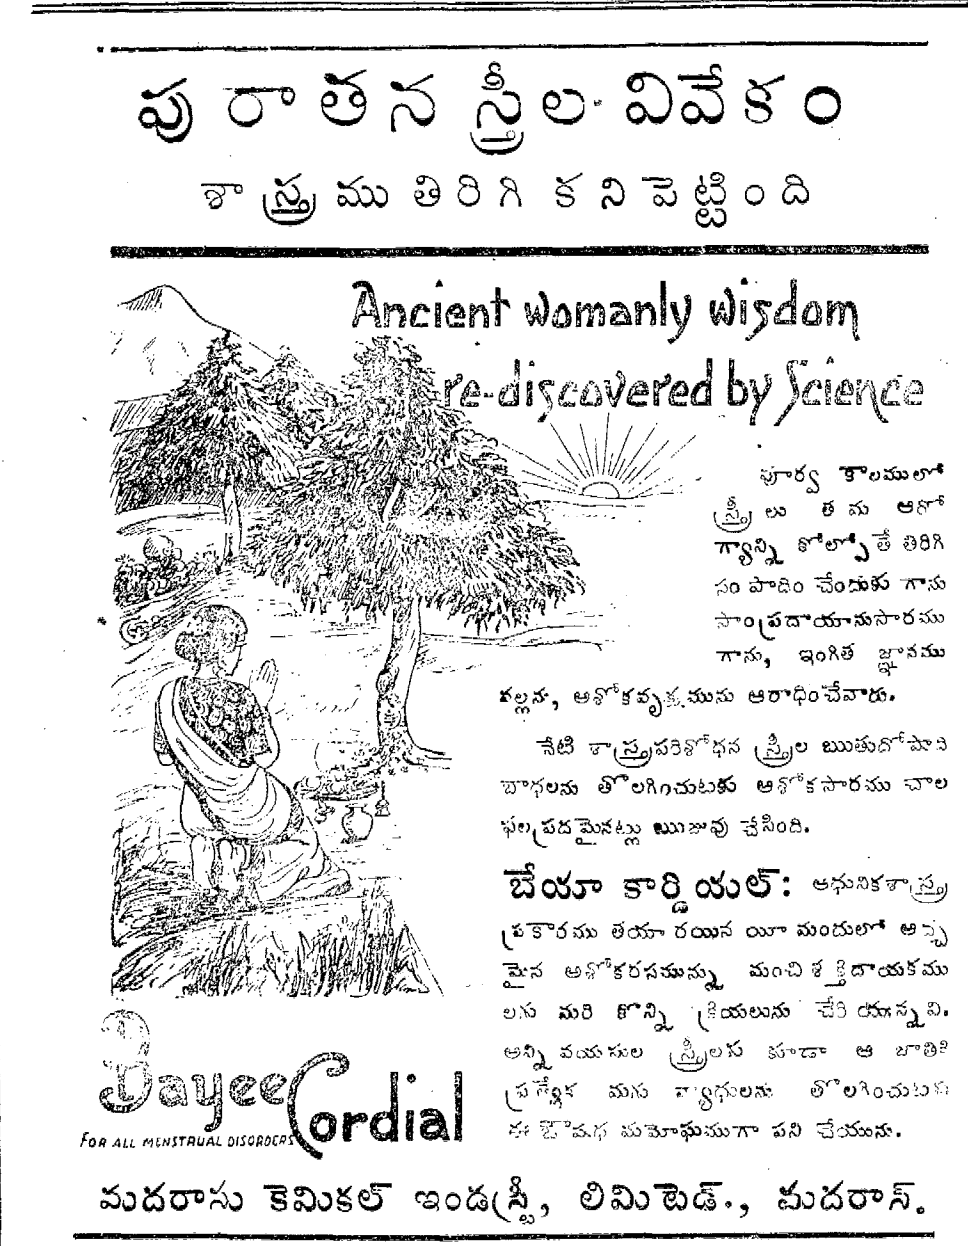 పురాతన స్త్రీల వివేకం
శాస్త్రము తిరిగి కనిపెట్టింది
Ancient womanly wisdom
re-discovered by Science
పూర్వ కాలములో
స్త్రీలు తమ ఆరో
గ్యాన్ని కోల్పోతే తిరిగి
సంపాదించేందుకు గాను
సాంప్రదాయానుసారము
గాను, ఇంగిత జ్ఞానము
వల్లను, అశోకవృక్షమును ఆరాధించేవారు.
నేటి శాస్త్రపరిశోధన స్త్రీల ఋతుదోషాది
బాధలను తొలగించుటకు అశోకసారము చాల
ఫలప్రదమైనట్లు ఋజువు చేసింది.
బేయీ కార్డియల్: అధునికశాస్త్ర
ప్రకారము తయా రయిన యీ మందులో అచ్చ
మైన అశోకరసమున్ను మంచి శక్తిదాయకము
లగు మరి కొన్ని క్రియలును చేరి యున్నవి.
అన్ని వయసుల స్త్రీలకు కూడా ఆ జాతికి
ప్రత్యేక మగు వ్యాధులను తొలగించుటకు
ఈ ఔషధ మమోఘముగా పని చేయును.
Bayee Cordial
FOR ALL MENSTRUAL DISORDERS
మదరాసు కెమికల్ ఇండస్ట్రీ, లిమిటెడ్., మదరాస్.